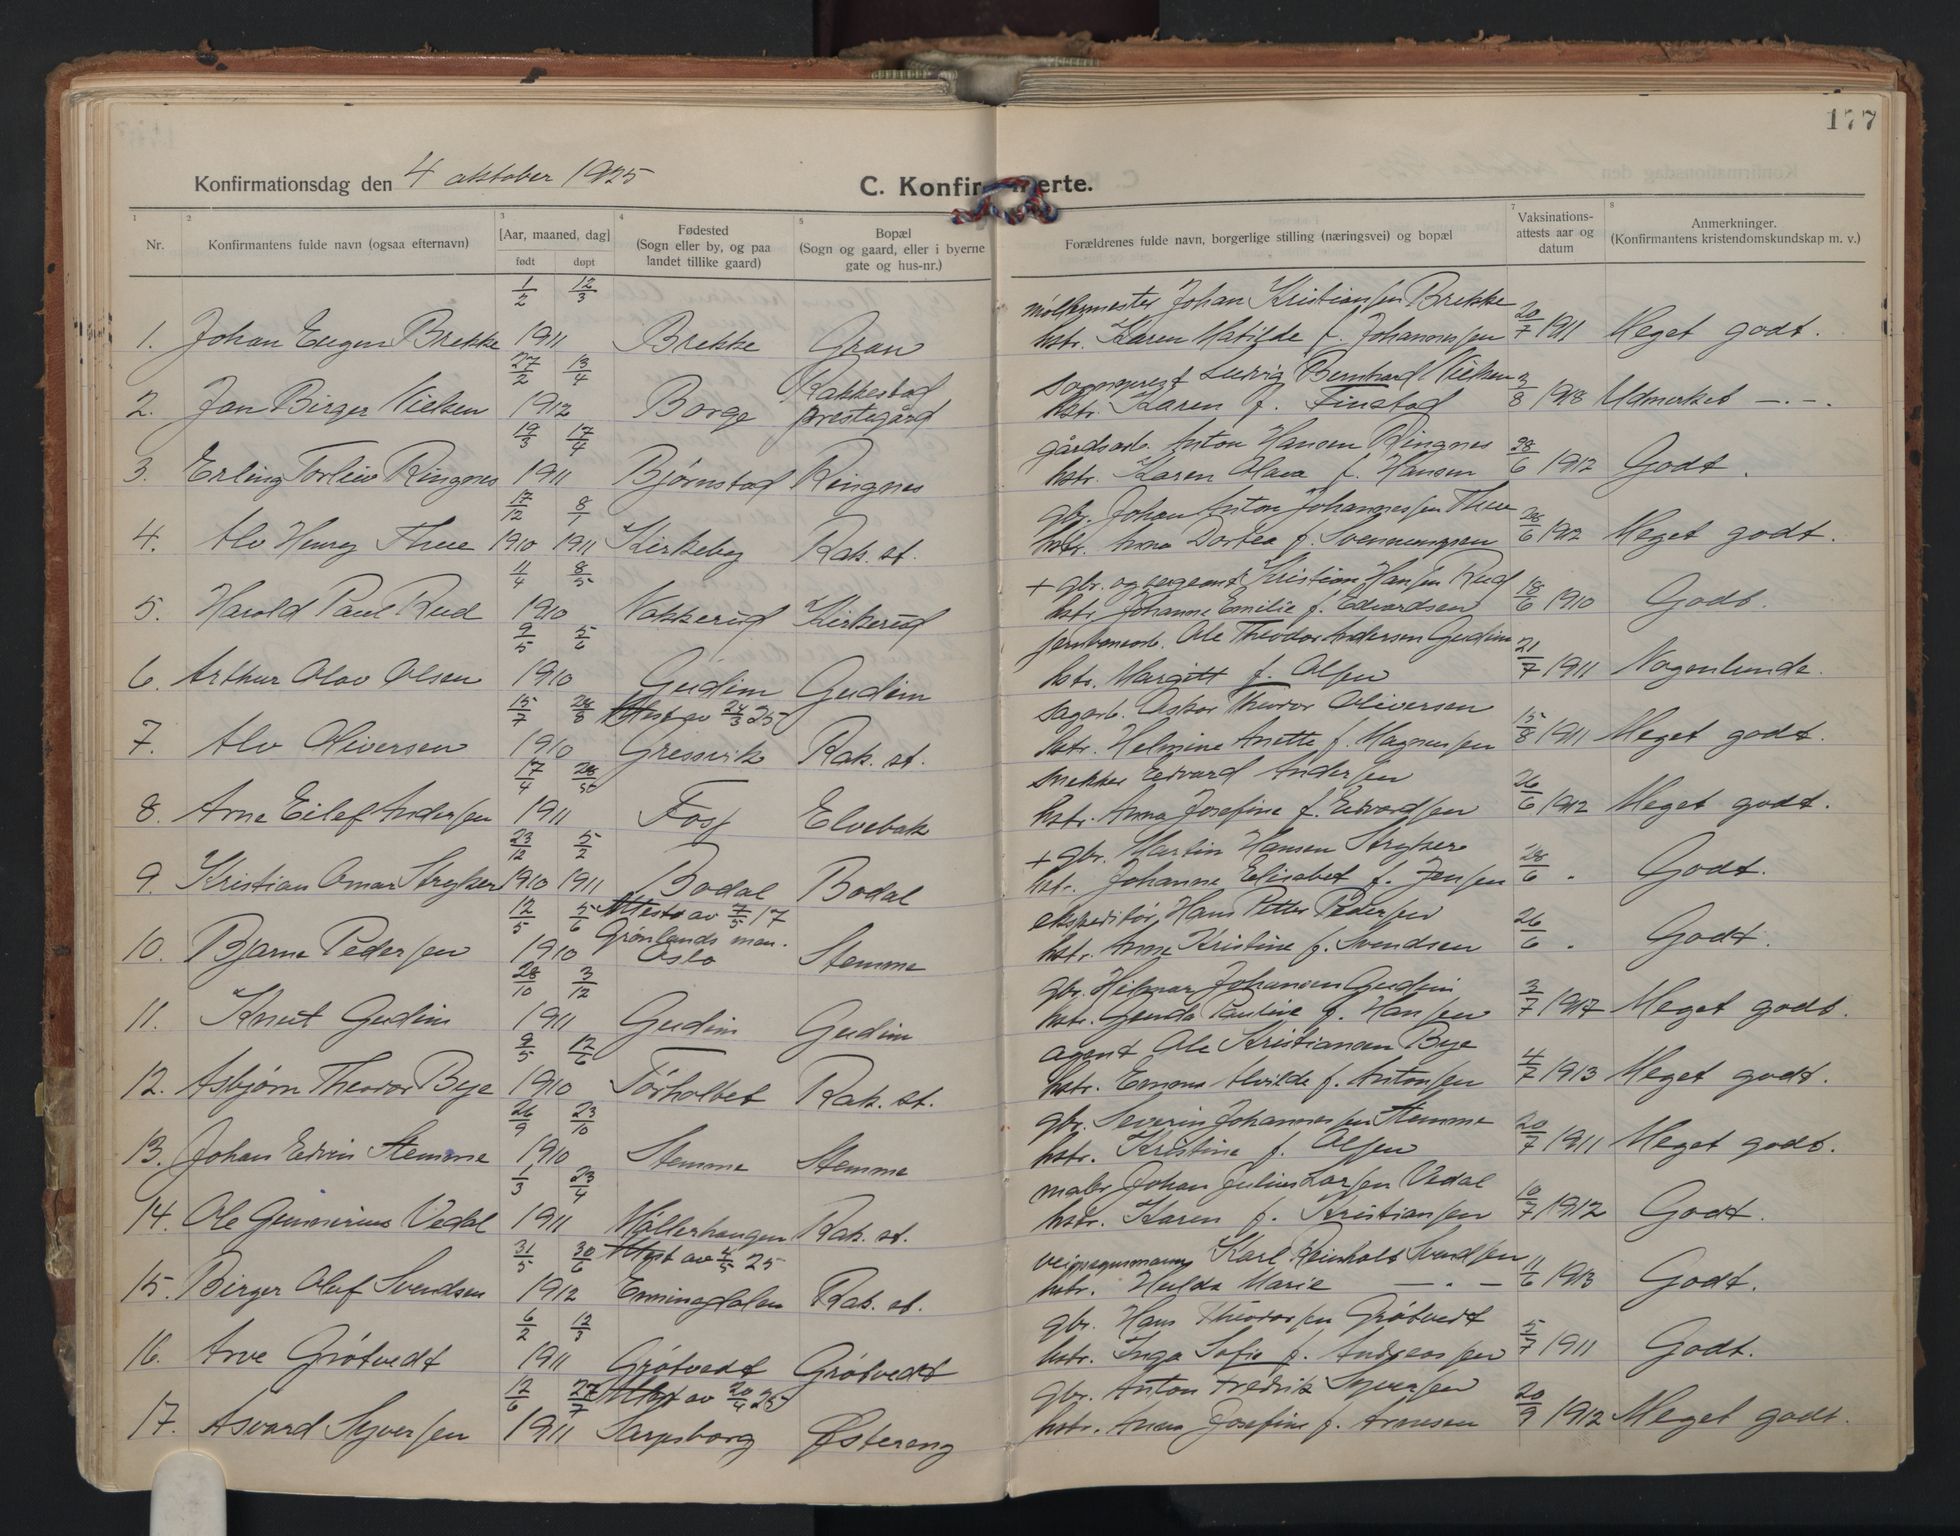 177
Konfirmationsdag den 4 oktober 1925
C. Konfir merte.
1 2 3 4 5 7 8
Nr.
Konfirmantens fulde navn (ogsaa efternavn)
[Aar, maaned, dag]
født døpt
Fødested
(Sogn eller by, og paa
landet tillike gaard)
Bopæl
(Sogn og gaard, eller i byerne
gate og hus-nr.)
Forældrenes fulde navn, borgerlige stilling (næringsvei) og bopæl
Vaksinations-
attests aar og
datum
Anmerkninger.
(Konfirmantens kristendomskundskap m. v.)
1/2 12/3 Johan Kristiansen Brekke
1. Johan Eugen Brekke 1911 Brekke Gran hstr. Karen Matilde f. Johannessen 20/7 1911 Meget godt.
27/2 13/4 Rakkestad sogneprest Ludvig Bernhard Nielsen
2. Jan Birger Nielsen 1912 Borge prestegård hstr. Karen f. Finstad 3/8 1918 Udmerket —.—.
19/3 17/4 gårdsarb. Anton Hansen Ringnes
3. Erling Torleiv Ringnes 1911 Bjørnstad Ringnes hstr. Karen Olava f. Hansen 28/6 1912 Godt.
17/12 8/1 gbr. Johan Anton Johannessen Thue
4. Alv Henry Thue 1910 1911 Kirkeby Rak. st. hstr. Anna Dortea f. Svenningsen 28/6 1912 Meget godt.
11/4 8/5 + gbr. og sergeant Kristian Hansen Rud
5. Harald Paul Rud 1910 Nakkerud Kirkerud hstr. Johanne Emilie f. Edvardsen 18/6 1910 Godt.
9/5 5/6 jernbanearb. Ole Theodor Andersen Gudim
6. Arthur Olav Olsen 1910 Gudim Gudim hstr. Margitt f. Olsen 21/7 1911 Nogenlunde.
15/7 28/8 Attest av 24/3 25 sagarb. Oskar Theodor Oliversen
7. Alv Oliversen 1910 Gressvik Rak. st. hstr. Helmine Anette f. Magnussen 15/8 1911 Meget godt.
17/4 28/5 snekker Edvard Andersen
8. Arne Eilef Andersen 1911 Foss Elvebak hstr. Anna Josefine f. Edvardsen 26/6 1912 Meget godt.
23/12 5/2 + gbr. Martin Hansen Stryker
9. Kristian Omar Stryker 1910 1911 Bodal Bodal hstr. Johanne Elisabet f. Jensen 28/6 " Godt.
12/5 5/6 Attest av 7/5 17 ekspeditør Hans Petter Pedersen
10. Bjarne Pedersen 1910 Grønlands men. Oslo Stemme hstr. Anne Kristine f. Svendsen 26/6 " Godt.
28/10 3/12 gbr. Hilmar Johansen Gudim
11. Knut Gudim 1911 Gudim Gudim hstr. Gunda Pauline f. Hansen 3/7 1917 Meget godt.
9/5 12/6 agent Ole Kristiansen Bye
12. Asbjørn Theodor Bye 1910 Torholtet Rak. st. hstr. Emma Alvilde f. Antonsen 4/7 1913 Meget godt.
26/9 23/10 gbr. Severin Johannessen Stemme
13. Johan Edvin Stemme 1910 Stemme Stemme hstr. Kristine f. Olsen 20/7 1911 Meget godt.
1/3 23/4 maler Johan Julius Larsen Vedal
14. Ole Gunnerius Vedal 1911 Møllerhaugen Rak. st. hstr. Karen f. Kristiansen 10/7 1912 Godt.
31/5 30/6 Attest av 4/5 25 Karl Reinholt Svendsen
15. Birger Oluf Svendsen 1912 Enningdalen Rak. st. hstr. Hulda Marie — . — 11/6 1913 Godt.
6/2 12/3 gbr. Hans Theodorsen Grøtvedt
16. Arve Grøtvedt 1911 Grøtvedt Grøtvedt hstr. Inga Sofie f. Andreassen 5/7 1911 Godt.
12/6 27/7 Attest av 20/4 25 gbr. Anton Fredrik Syversen
17. Asvard Syversen 1911 Sarpsborg Østereng hstr. Anna Josefine f. Arnesen 20/9 1912 Meget godt.